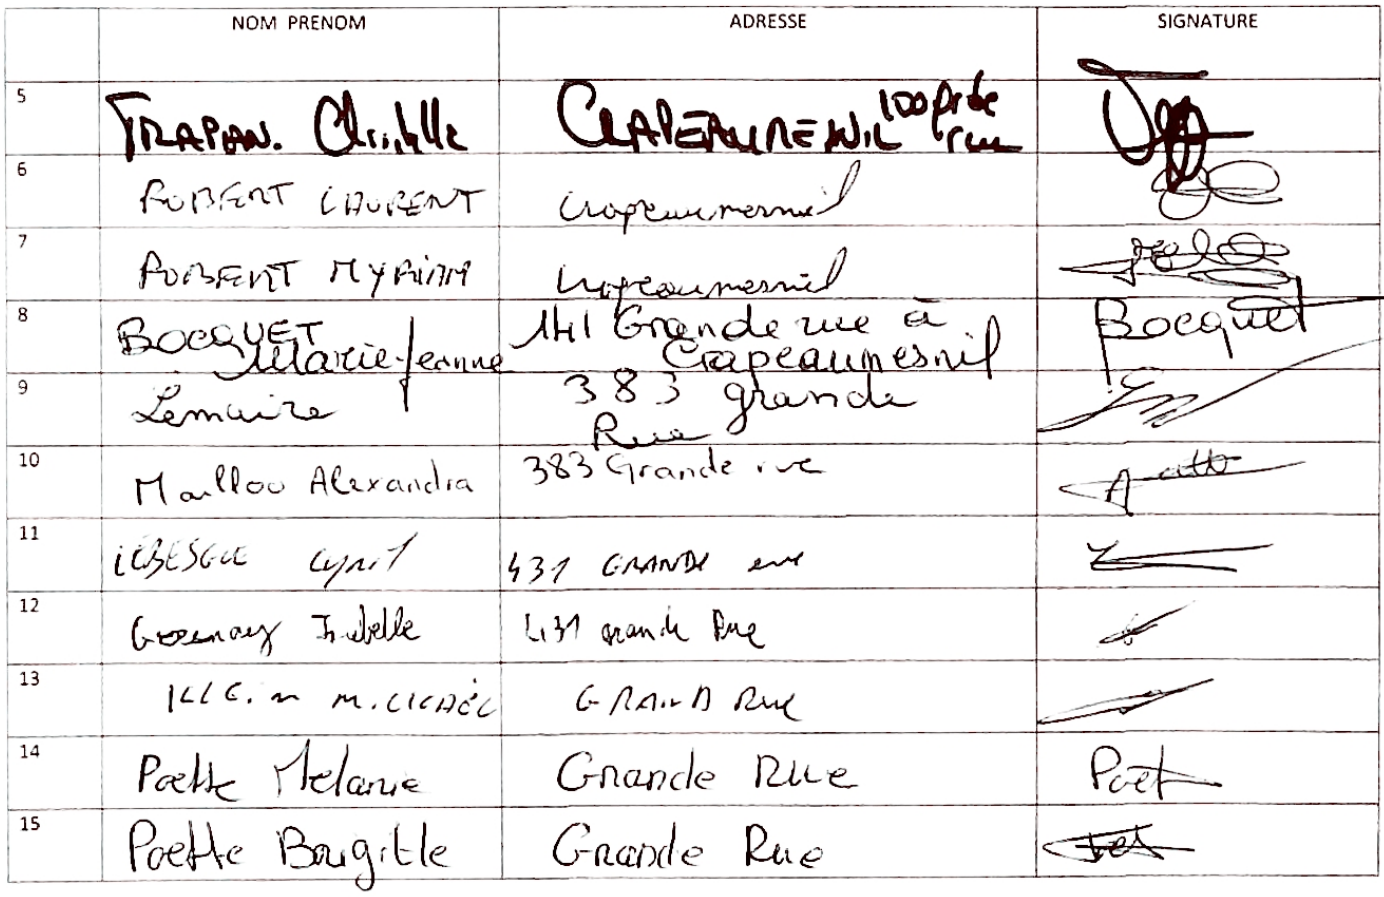 NOM PRENOM ADRESSE SIGNATURE
5 TRAPAN. Christelle CRAPEAUMESNIL 100 grde rue
6 ROBERT LAURENT Crapeaumesnil
7 ROBERT MYRIAM Crapeaumesnil
8 BOCQUET Marie-Jeanne 141 Grande rue à Crapeaumesnil Bocquet
9 Lemaire 383 grande Rue
10 Maillou Alexandra 383 Grande rue
11 LEBESGUE Cyril 431 GRANDE rue
12 Isabelle 431 grande Rue
13 KLEin MiCHAËL GRAND RUE
14 Poette Melanie Grande RUe Poet
15 Poette Brigitte Grande Rue